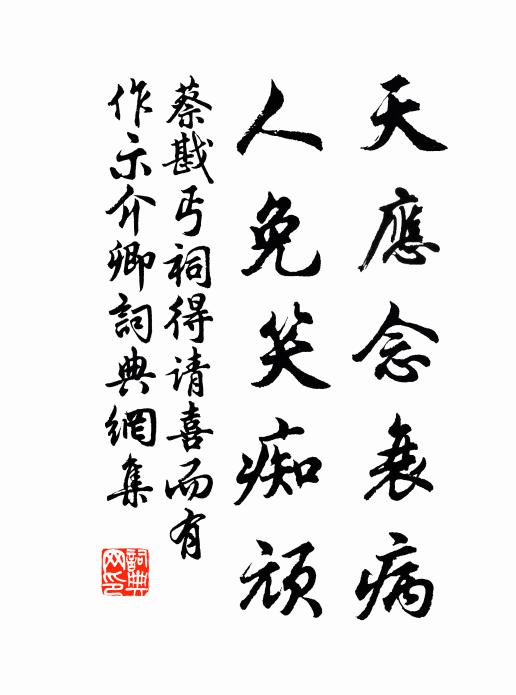 天應念衰病
人免笑痴頑
蔡戡丐祠得请喜而有
作示介卿詞典網集
詞典网印